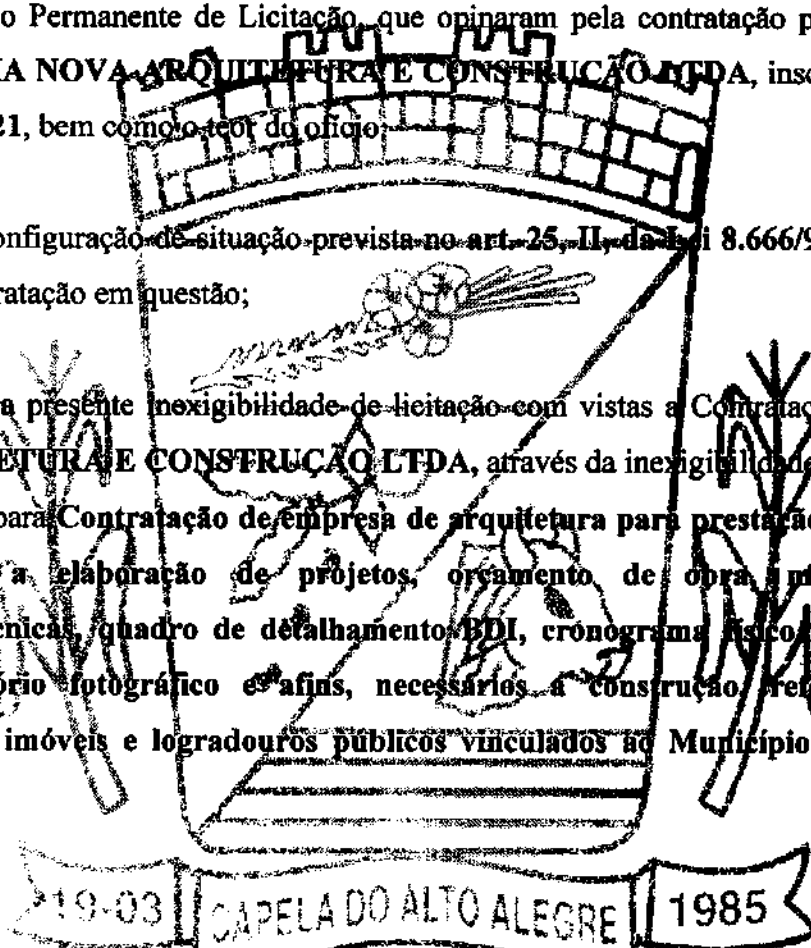 o Permanente de Licitação, que opinaram pela contratação p
IA NOVA ARQUITETURA E CONSTRUÇÃO LTDA, insc
21, bem como o teor do ofício;
onfiguração de situação prevista no art. 25, II, da Lei 8.666/9
ratação em questão;
a presente inexigibilidade de licitação com vistas a Contrataç
ETURA E CONSTRUÇÃO LTDA, através da inexigibilidade
para Contratação de empresa de arquitetura para prestação
a elaboração de projetos, orçamento de obra, m
cnicas, quadro de detalhamento BDI, cronograma físico
ório fotográfico e afins, necessários a construção, ref
imóveis e logradouros públicos vinculados ao Município
19-03 CAPELA DO ALTO ALEGRE 1985